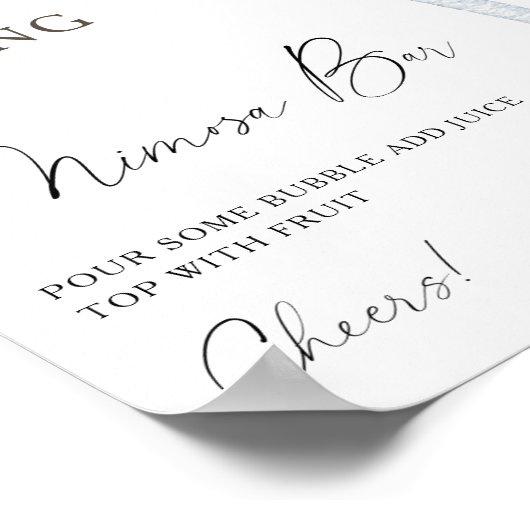 NG
Mimosa Bar
POUR SOME BUBBLE ADD JUICE
TOP WITH FRUIT
Cheers!